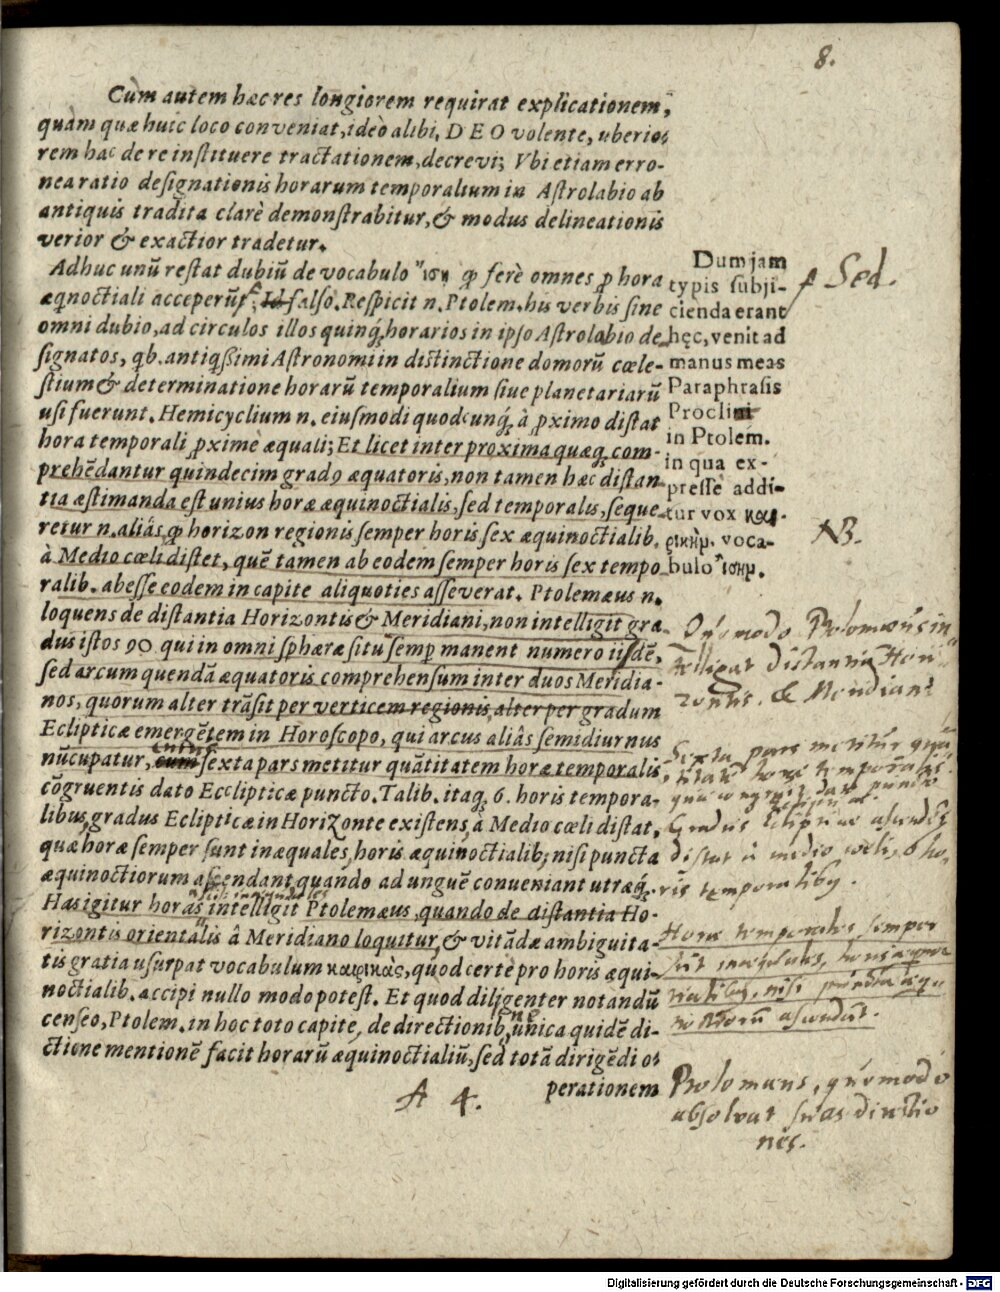 8.
Cùm autem hæc res longiorem requirat explicationem,
quàm quæ huic loco conveniat, ideò alibi, DEO volente, uberio-
rem hac de re instituere tractationem, decrevi; Vbi etiam erro-
nea ratio designationis horarum temporalium in Astrolabio ab
antiquis tradita clarè demonstrabitur, & modus delineationis
verior & exactior tradetur.
Adhuc unũ restat dubiũ de vocabulo ἴση ꝙ ferè omnes ꝓ hora
æq̃noctiali acceperũt, Id falso. Respicit n. Ptolem. his verbis sine
omni dubio, ad circulos illos quinq́, horarios in ipso Astrolabio de-
signatos, qb. antiqßimi Astronomi in distinctione domorũ cœle-
stium & determinatione horarũ temporalium siue planetariarũ
usi fuerunt. Hemicyclium n. eiusmodi quodcunq́, à ꝓximo distat
hora temporali ꝓximè æquali; Et licet inter proxima quæq, com-
prehẽdantur quindecim grad9 æquatoris, non tamen hæc distan-
tia æstimanda est unius horæ æquinoctialis, sed temporalis, seque-
retur n. aliâs, ꝙ horizon regionis semper horis sex æquinoctialib.
à Medio cœli distet, quẽ tamen ab eodem semper horis sex tempo
ralib. abesse eodem in capite aliquoties asseverat. Ptolemæus n.
loquens de distantia Horizontis & Meridiani, non intelligit gra-
dus istos 90 qui in omni sphæræ situ semꝑ manent numero iisdẽ,
sed arcum quendã æquatoris comprehensum inter duos Meridia-
nos, quorum alter trãsit per verticem regionis, alter per gradum
Eclipticæ emergẽtem in Horoscopo, qui arcus aliâs semidiurnus
cuius
nũcupatur, cum sexta pars metitur quãtitatem horæ temporalis
cõgruentis dato Ecclipticæ puncto. Talib. itaq, 6. horis tempora-
libus, gradus Eclipticæ in Horizonte existens, à Medio cœli distat,
quæ horæ semper sunt inæquales, horis æquinoctialib; nisi puncta
æquinoctiorum ascendant, quando ad unguẽ conueniant utræq́.
Has igitur horas intelligit Ptolemæus, quando de distantia Ho-
rizontis orientalis â Meridiano loquitur, & vitãdæ ambiguita-
tis gratia usurpat vocabulum καιρικὰς, quod certè pro horis æqui-
noctialib. accipi nullo modo potest. Et quod diligenter notandũ
ne
censeo, Ptolem. in hoc toto capite, de directionib, unica quidẽ di-
ctione mentionẽ facit horarũ æquinoctialiũ, sed totã dirigẽdi o-
perationem
A 4.
Dum jam
typis subji-
cienda erant
hęc, venit ad
manus meas
Paraphrasis
Procli
in Ptolem.
in qua ex-
pressè addi-
tur vox και-
ρικὴν. voca-
bulo ἴσην.
Sed.
NB.
Quomodo Ptolomæus in
telligat distantia Hori
zontis, & Meridiani
Sexta pars metitur quã
titatẽ horæ temporalis.
quæ congruit dato puncto
Eclipticæ.
Gradus Eclipticæ ascendẽs
distat à medio coeli, 6 ho,
ris temporalibꝰ.
Horæ temporales semper
sũt inæquales, horis æqui
noctialibus, nisi puncta æqui
noctiorũ ascendãt.
Ptolomæus, quomodo
absolvat suas directio
nes.
Digitalisierung gefördert durch die Deutsche Forschungsgemeinschaft - DFG